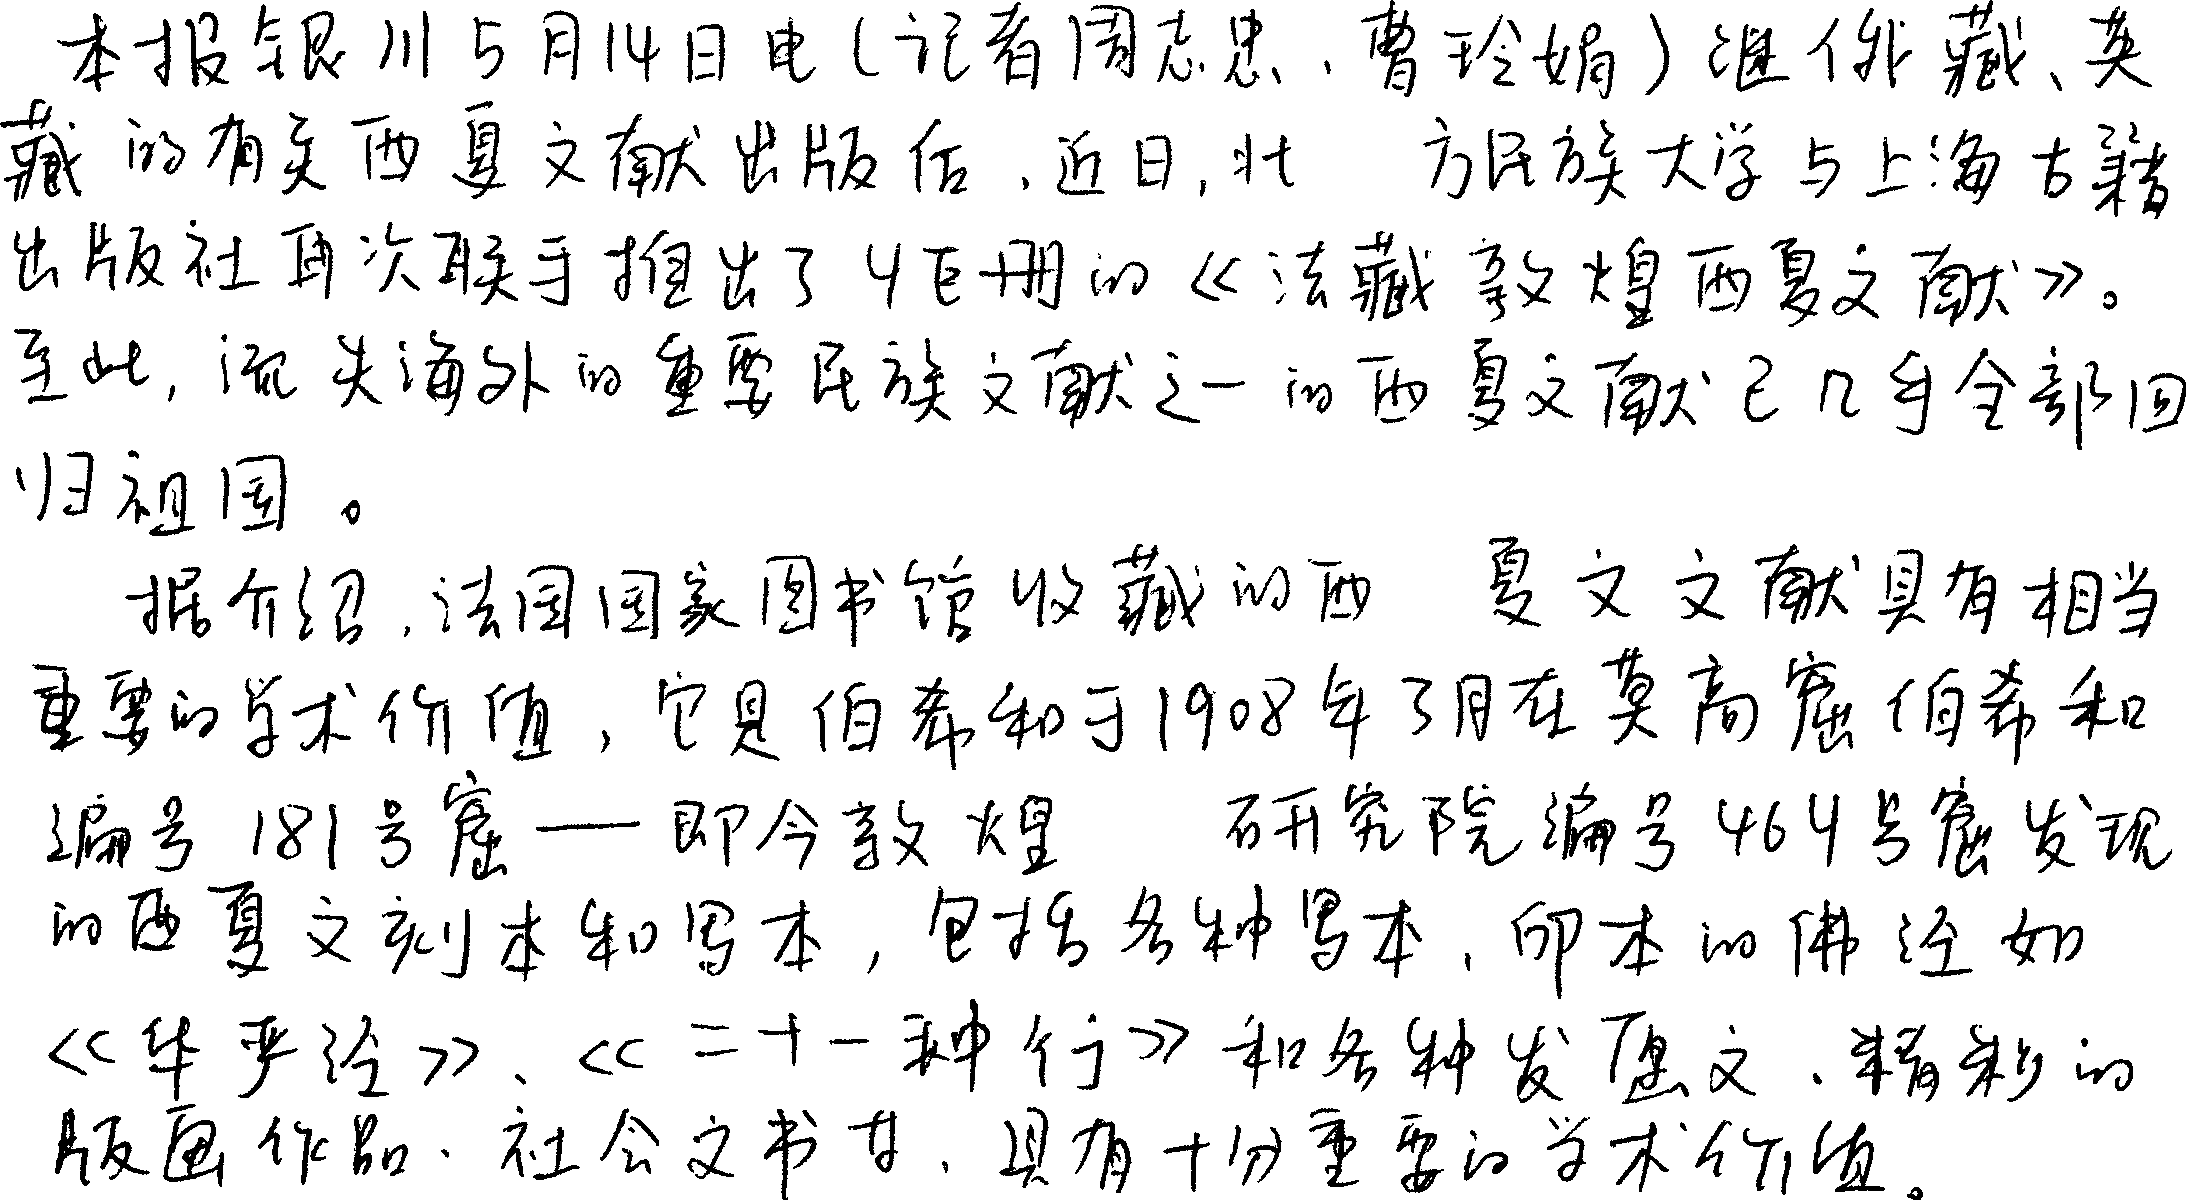 本报银川5月14日电(记者周志忠、曹玲娟)继俄藏、英
藏的有关西夏文献出版后,近日,北方民族大学与上海古籍
出版社再次联手推出了4巨册的《法藏敦煌西夏文献》。
至此,流失海外的重要民族文献之一的西夏文献已几乎全部回
归祖国。
据介绍,法国国家图书馆收藏的西夏文文献具有相当
重要的学术价值,它是伯希和于1908年3月在莫高窟伯希和
编号181号窟——即今敦煌研究院编号464号窟发现
的西夏文刻本和写本,包括各种写本、印本的佛经如
《华严经》、《二十一种行》和各种发愿文、精彩的
版画作品、社会文书等,具有十分重要的学术价值。